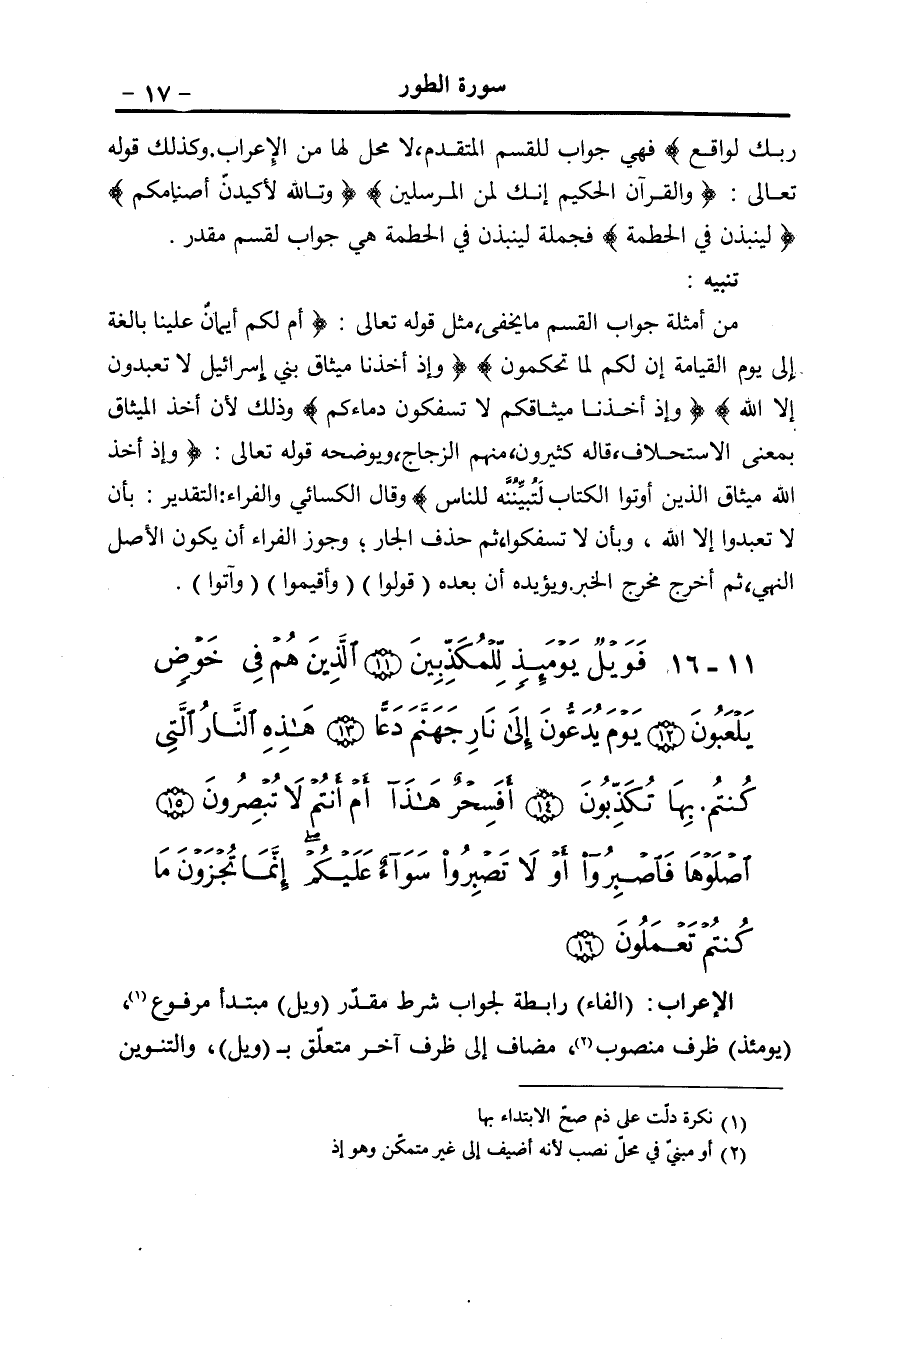 سورة الطور
- ١٧ -
ربـك لواقـع ﴾ فهي جواب للقسم المتقدم،لا محل لها من الإعراب.وكذلك قوله
تعـالى : ﴿ والقـرآن الحكيم إنـك لمن المـرسلين ﴾ ﴿ وتـالله لأكيدنّ أصنامكم ﴾
﴿ لينبذن في الحطمة ﴾ فجملة لينبذن في الحطمة هي جواب لقسم مقدر .
تنبيه :
من أمثلة جواب القسم مايخفى،مثل قوله تعالى : ﴿ أم لكم أيمانٌ علينا بالغة
إلى يوم القيامة إن لكم لما تحكمون ﴾ ﴿ وإذ أخذنا ميثاق بني إسرائيل لا تعبدون
إلا الله ﴾ ﴿ وإذ أخـذنـا ميثـاقكم لا تسفكون دماءكم ﴾ وذلك لأن أخذ الميثاق
بمعنى الاستحـلاف،قاله كثيرون،منهم الزجاج،ويوضحه قوله تعالى : ﴿ وإذ أخذ
الله ميثاق الذين أوتوا الكتاب لَتُبيِّنُنَّه للناس ﴾ وقال الكسائي والفراء:التقدير : بأن
لا تعبدوا إلا الله ، وبأن لا تسفكوا،ثم حذف الجار ؛ وجوز الفراء أن يكون الأصل
النهي،ثم أخرج مخرج الخبر.ويؤيده أن بعده ( قولوا ) ( وأقيموا ) ( وآتوا ) .
١١ - ١٦ فَوَيْلٌ يَوْمَئِذٍ لِّلْمُكَذِّبِينَ ﴿١١﴾ ٱلَّذِينَ هُمْ فِى خَوْضٍ
يَلْعَبُونَ ﴿١٢﴾ يَوْمَ يُدَعُّونَ إِلَىٰ نَارِ جَهَنَّمَ دَعًّا ﴿١٣﴾ هَـٰذِهِ ٱلنَّـارُ ٱلَّتِى
كُنتُم بِهَا تُكَذِّبُونَ ﴿١٤﴾ أَفَسِحْرٌ هَـٰذَآ أَمْ أَنتُمْ لَا تُبْصِرُونَ ﴿١٥﴾
ٱصْلَوْهَا فَٱصْبِرُوٓا۟ أَوْ لَا تَصْبِرُوا۟ سَوَآءٌ عَلَيْكُمْ ۖ إِنَّمَا تُجْزَوْنَ مَا
كُنتُمْ تَعْمَلُونَ ﴿١٦﴾
الإعراب : (الفاء) رابطة لجواب شرط مقدّر (ويل) مبتـدأ مرفـوع (١)،
(يومئذ) ظرف منصوب (٢)، مضاف إلى ظرف آخـر متعلّق بـ (ويل)، والتنـوين
(١) نكرة دلّت على ذم صحّ الابتداء بها
(٢) أو مبنيّ في محلّ نصب لأنه أضيف إلى غير متمكّن وهو إذ